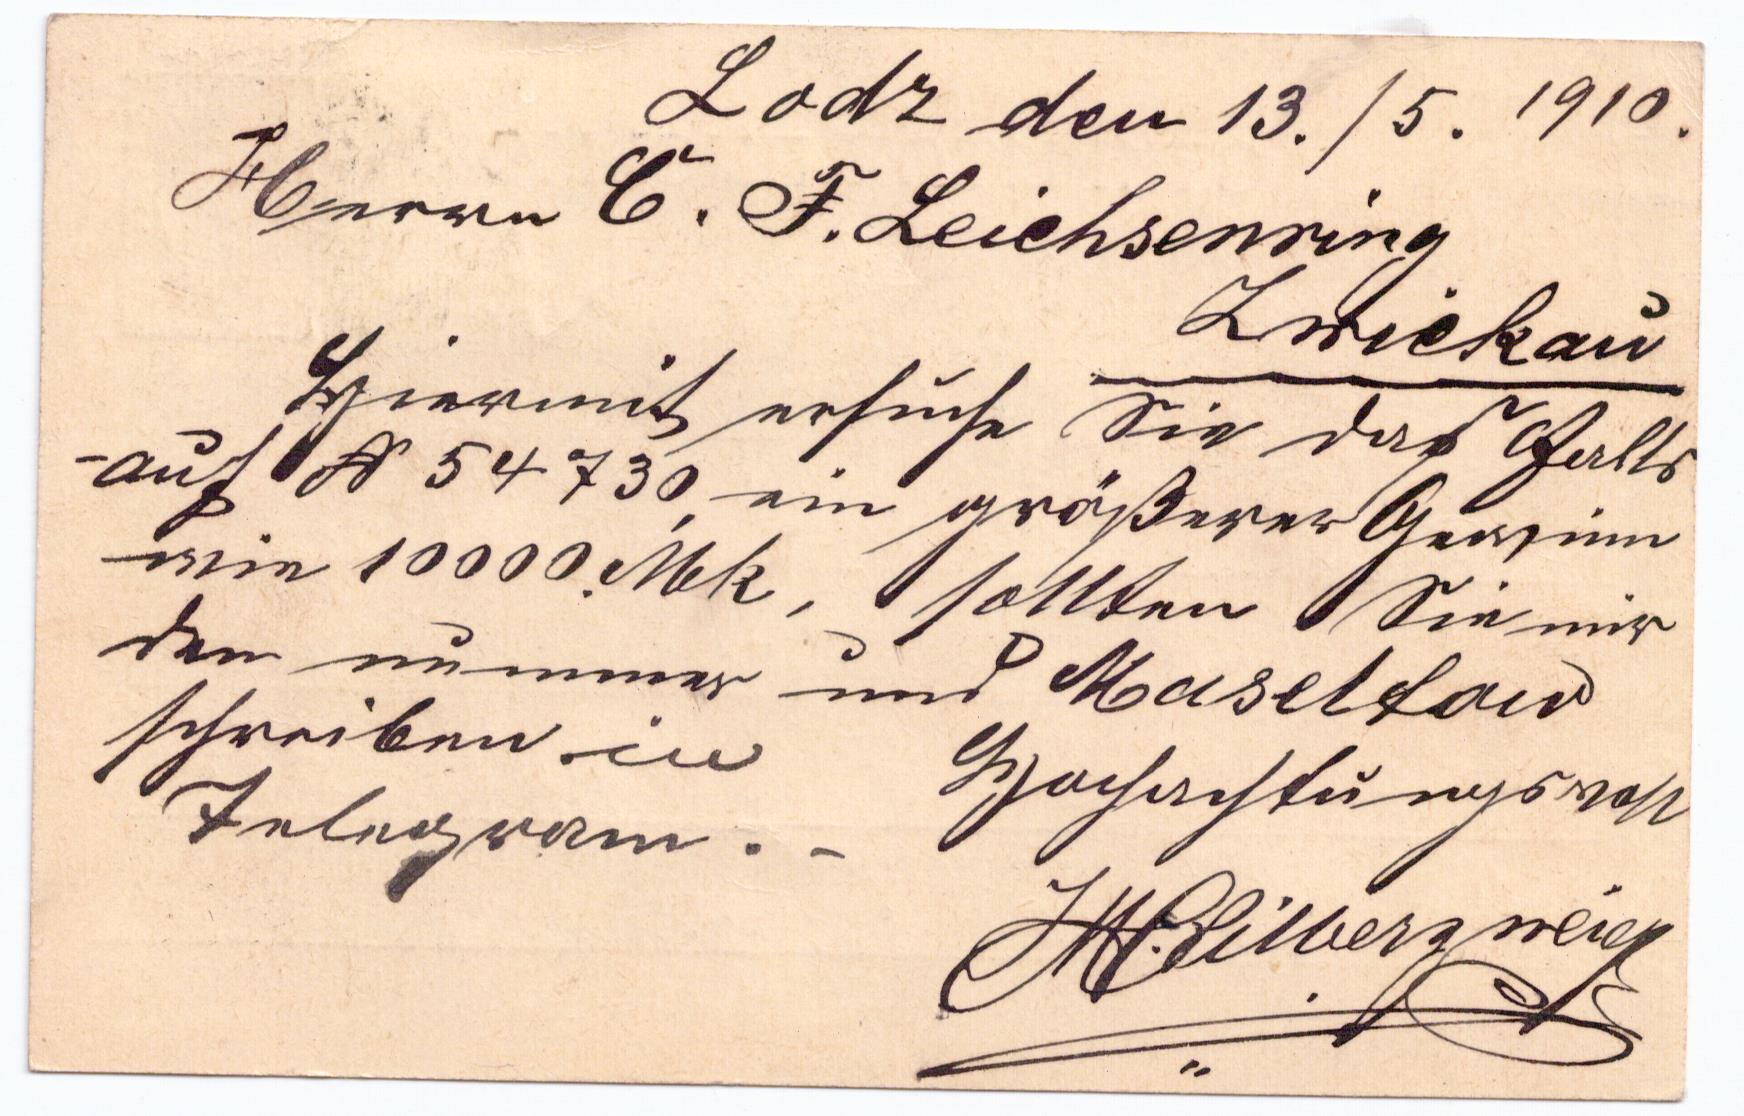 Lodz den 13./5. 1910.
Herrn C. F. Leichsenring
Zwickau
Hiermit ersuche Sie das Falls
auf № 54730, ein größerer Gewinn
wie 10000. Mk, sollten Sie mir
den nummer und Maseltow
schreiben in
Telegram . -
Hochachtungsvoll
Silberzweig